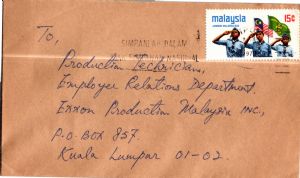 To,
malaysia
15¢
SIMPANLAH DALAM
NASIONAL
Production Technicians,
Employee Relations Department,
Exxon Production Malaysia INC.,
P.O. Box 857.
Kuala Lumpur 01-02.